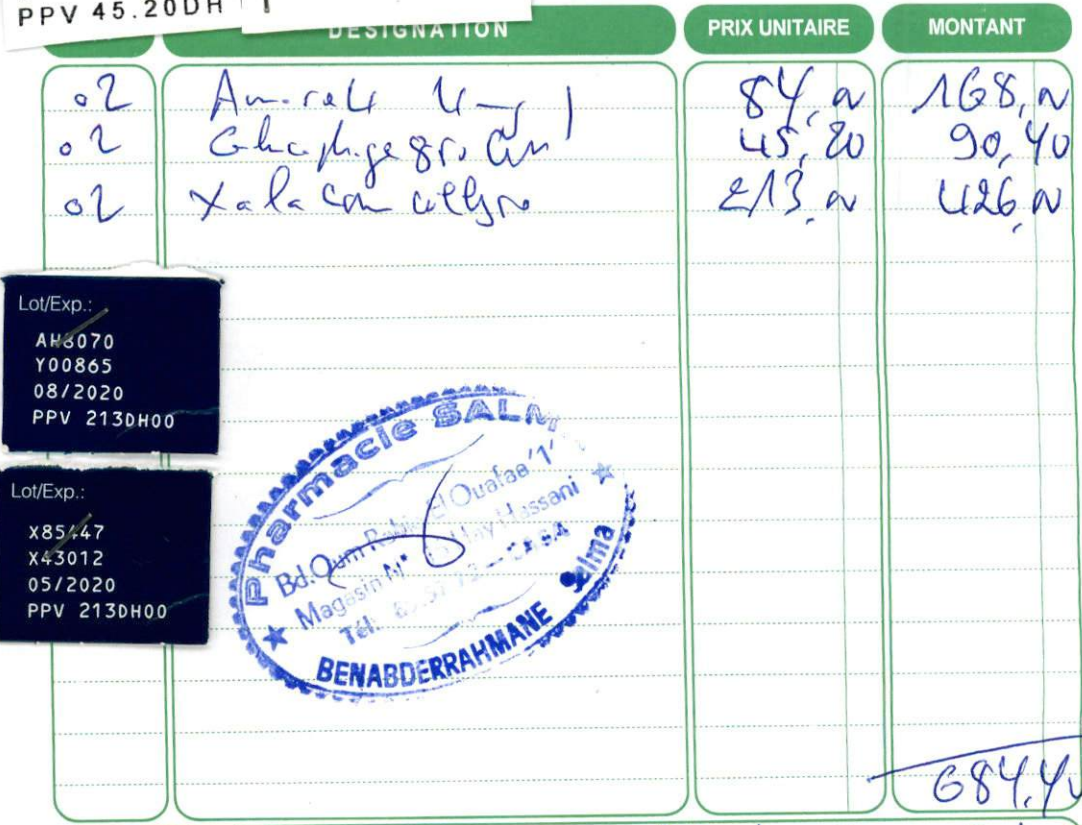 PPV 45.20DH
DESIGNATION PRIX UNITAIRE MONTANT
02 84,00 168,00
02 45,20 90,40
02 Xalacom 213,00 426,00
Lot/Exp.:
AH8070
Y00865
08/2020
PPV 213DH00
Lot/Exp.:
X43012
05/2020
PPV 213DH00
Pharmacie SALM
Bd. Oum Rabia El Ouafaa '1'
Magasin N° Hay Hassani
Tél:
BENABDERRAHMANE Salma
684,40